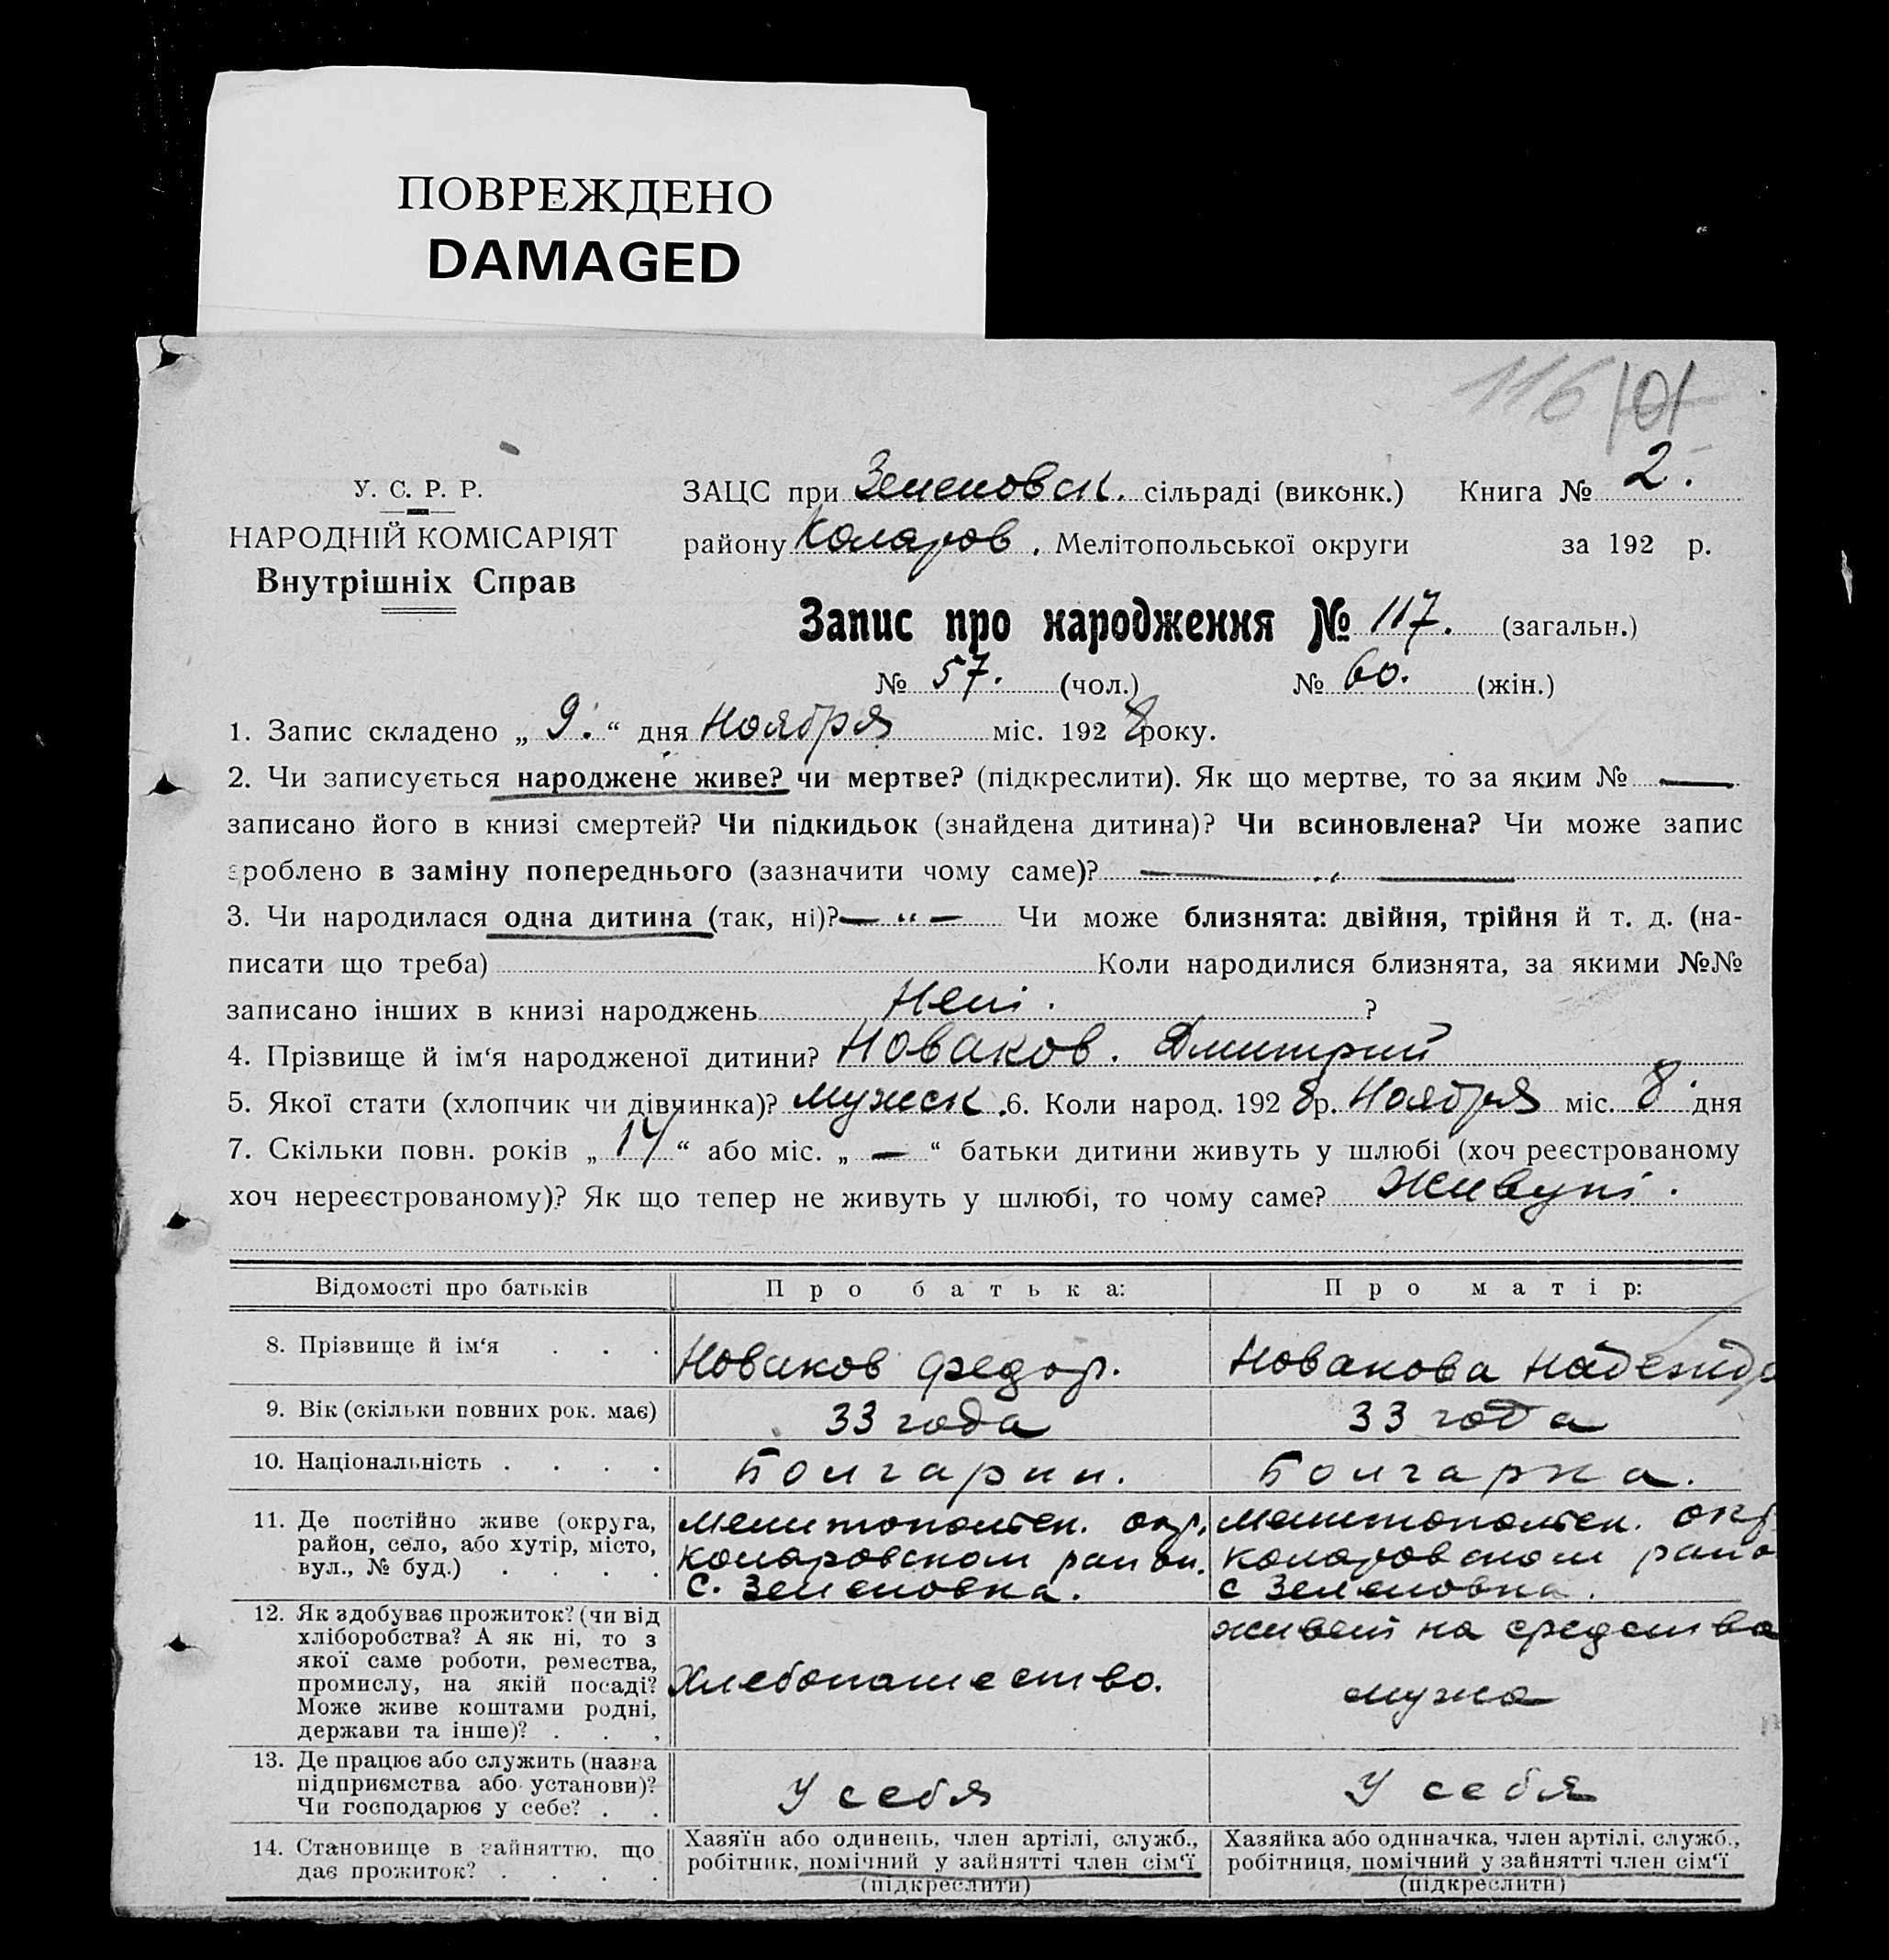 ПОВРЕЖДЕНО
DAMAGED
116 101
У. С. Р. Р.
НАРОДНІЙ КОМІСАРІЯТ
Внутрішніх Справ
ЗАЦС при Зеленовск. сільраді (виконк.) Книга № 2.
району Коларов. Мелітопольської округи за 192 р.
Запис про народження № 117. (загальн.)
№ 57. (чол.) № 60. (жін.)
1. Запис складено „ 9. “ дня Ноября міс. 1928 року.
2. Чи записується народжене живе? чи мертве? (підкреслити). Як що мертве, то за яким № —
записано його в книзі смертей? Чи підкидьок (знайдена дитина)? Чи всиновлена? Чи може запис
зроблено в заміну попереднього (зазначити чому саме)? — „ —
3. Чи народилася одна дитина (так, ні)? — „ — Чи може близнята: двійня, трійня й т. д. (на-
писати що треба) Коли народилися близнята, за якими №№
записано інших в книзі народжень Нет. ?
4. Прізвище й ім‘я народженої дитини? Новаков. Дмитрий
5. Якої стати (хлопчик чи дівчинка)? мужск. 6. Коли народ. 1928 р. Ноября міс. 8 дня
7. Скільки повн. років „ 14 “ або міс. „ — “ батьки дитини живуть у шлюбі (хоч реєстрованому
хоч нереєстрованому)? Як що тепер не живуть у шлюбі, то чому саме? Живут.
Відомості про батьків Про батька: Про матір:
8. Прізвище й ім‘я . . . Новаков Федор. Новакова Надежда
9. Вік (скільки повних рок. має) 33 года 33 года
10. Національність . . . . Болгарин. Болгарка.
11. Де постійно живе (округа, Мелитопольск. окр. Мелитопольск. окр
район, село, або хутір, місто, Коларовском район. Коларовском райо
вул., № буд.) . . . . с. Зеленовка. с Зеленовка.
12. Як здобуває прожиток? (чи від живет на средства
хліборобства? А як ні, то з
якої саме роботи, ремества,
промислу, на якій посаді? Хлебопашество. мужа
Може живе коштами родні,
держави та інше)? . . .
13. Де працює або служить (назва
підприємства або установи)? У себя У себя
Чи господарює у себе? . .
14. Становище в зайняттю, що Хазяїн або одинець, член артілі, служб., Хазяйка або одиначка, член артілі, служб.,
дає прожиток? . . . . робітник, помічний у зайнятті член сім‘ї робітниця, помічний у зайнятті член сім‘ї
(підкреслити) (підкреслити)